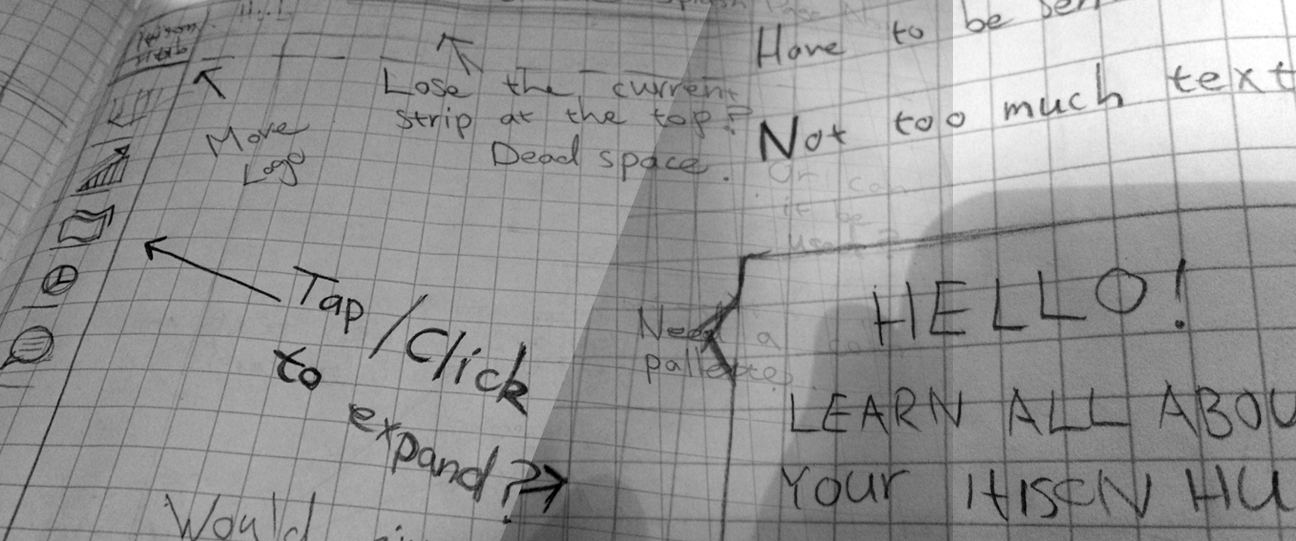 Move
Logo
Lose the current
strip at the top?
Dead space.
Tap/Click
to
expand?
Would
Have to be
Not too much text
Or can
it be
used?
Need a
pallette
HELLO!
LEARN ALL ABOU
YOUR HISCN HU